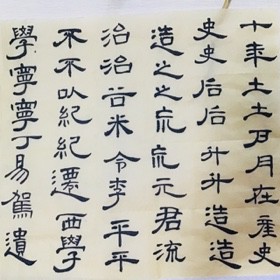 十年土土月月在產史
史史后后升升造造
造之之㐬㐬元君流
治治谷米令李平平
不不以紀紀遷西學
學寧寧丁易駕遺